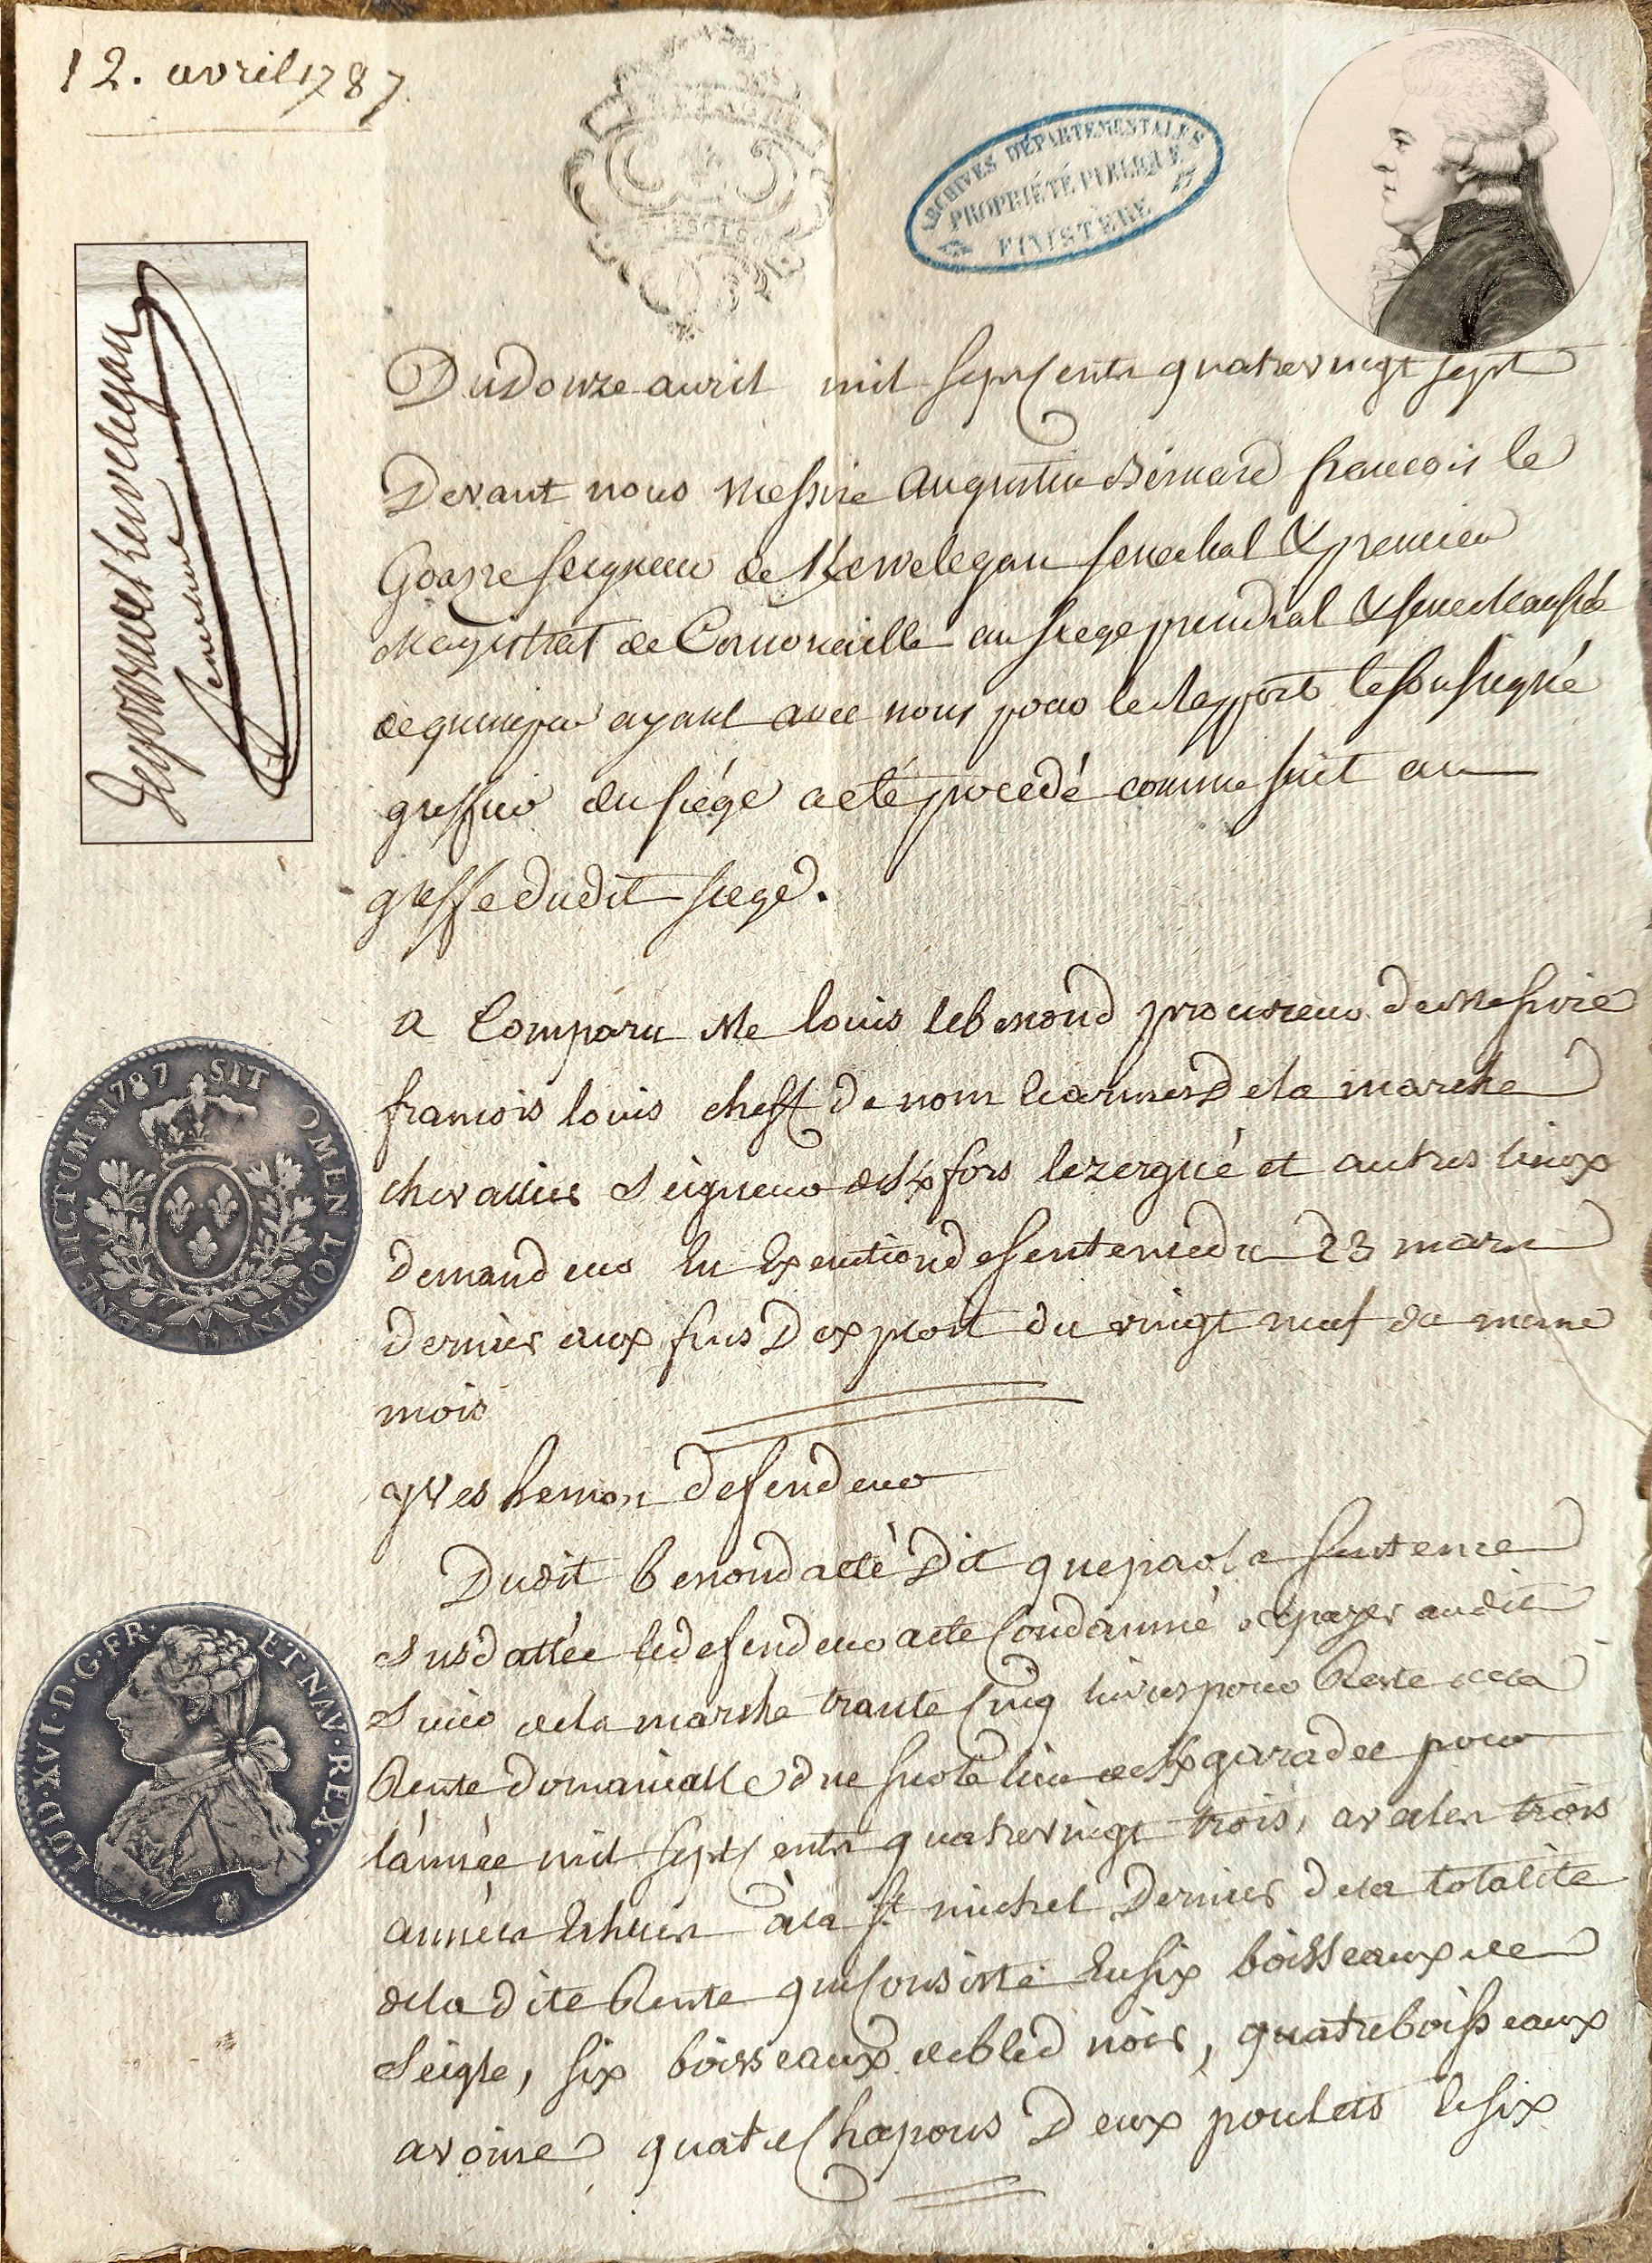 12. avril 1787.
BRETAGNE
ARCHIVES DÉPARTEMENTALES
PROPRIÉTÉ PUBLIQUE
FINISTÈRE
Du Douze avril mil sept cents quatrevingt sept
Devant nous Messire Augustin Bernard francois le
Goazre seigneur de Kervelegan senechal & premier
Magistrat de Cornoüaille au siege presidial & senechaussée
de quimper ayant avec nous pour le Rapport le soussigné
greffier du siége a eté procedé comme suit au
greffe dudit siege.
a Comparu Me louis lebenond procureur de Messire
francois louis cheff de nom & armes de la marche
chevallier Seigneur de Kfors lezergué et autres lieux
demandeur En Execution de sentence du 23 mars
dernier aux fins Dexploit du vingt neuf du meme
mois
yves hemon defendeur
Dudit benond a eté Dit que par la sentence
Susdattée le defendeur a eté Condamné de payer audit
Sieur de la marche trante Cinq livres pour Reste de la
Rente domanialle due sur le lieu de Kgaradec pour
l'année mil sept cents quatrevingt trois, avec les trois
années Echues à la St michel Dernier de la totalité
de la dite Rente qui Consiste En six boisseaux de
Seigle, six boisseaux de bled noir, quatre boisseaux
avoine quatre Chapons Deux poulets & six
1787 SIT NOMEN DOMINI BENEDICTUM
LUD.XVI.D.G.FR. ET NAV.REX.